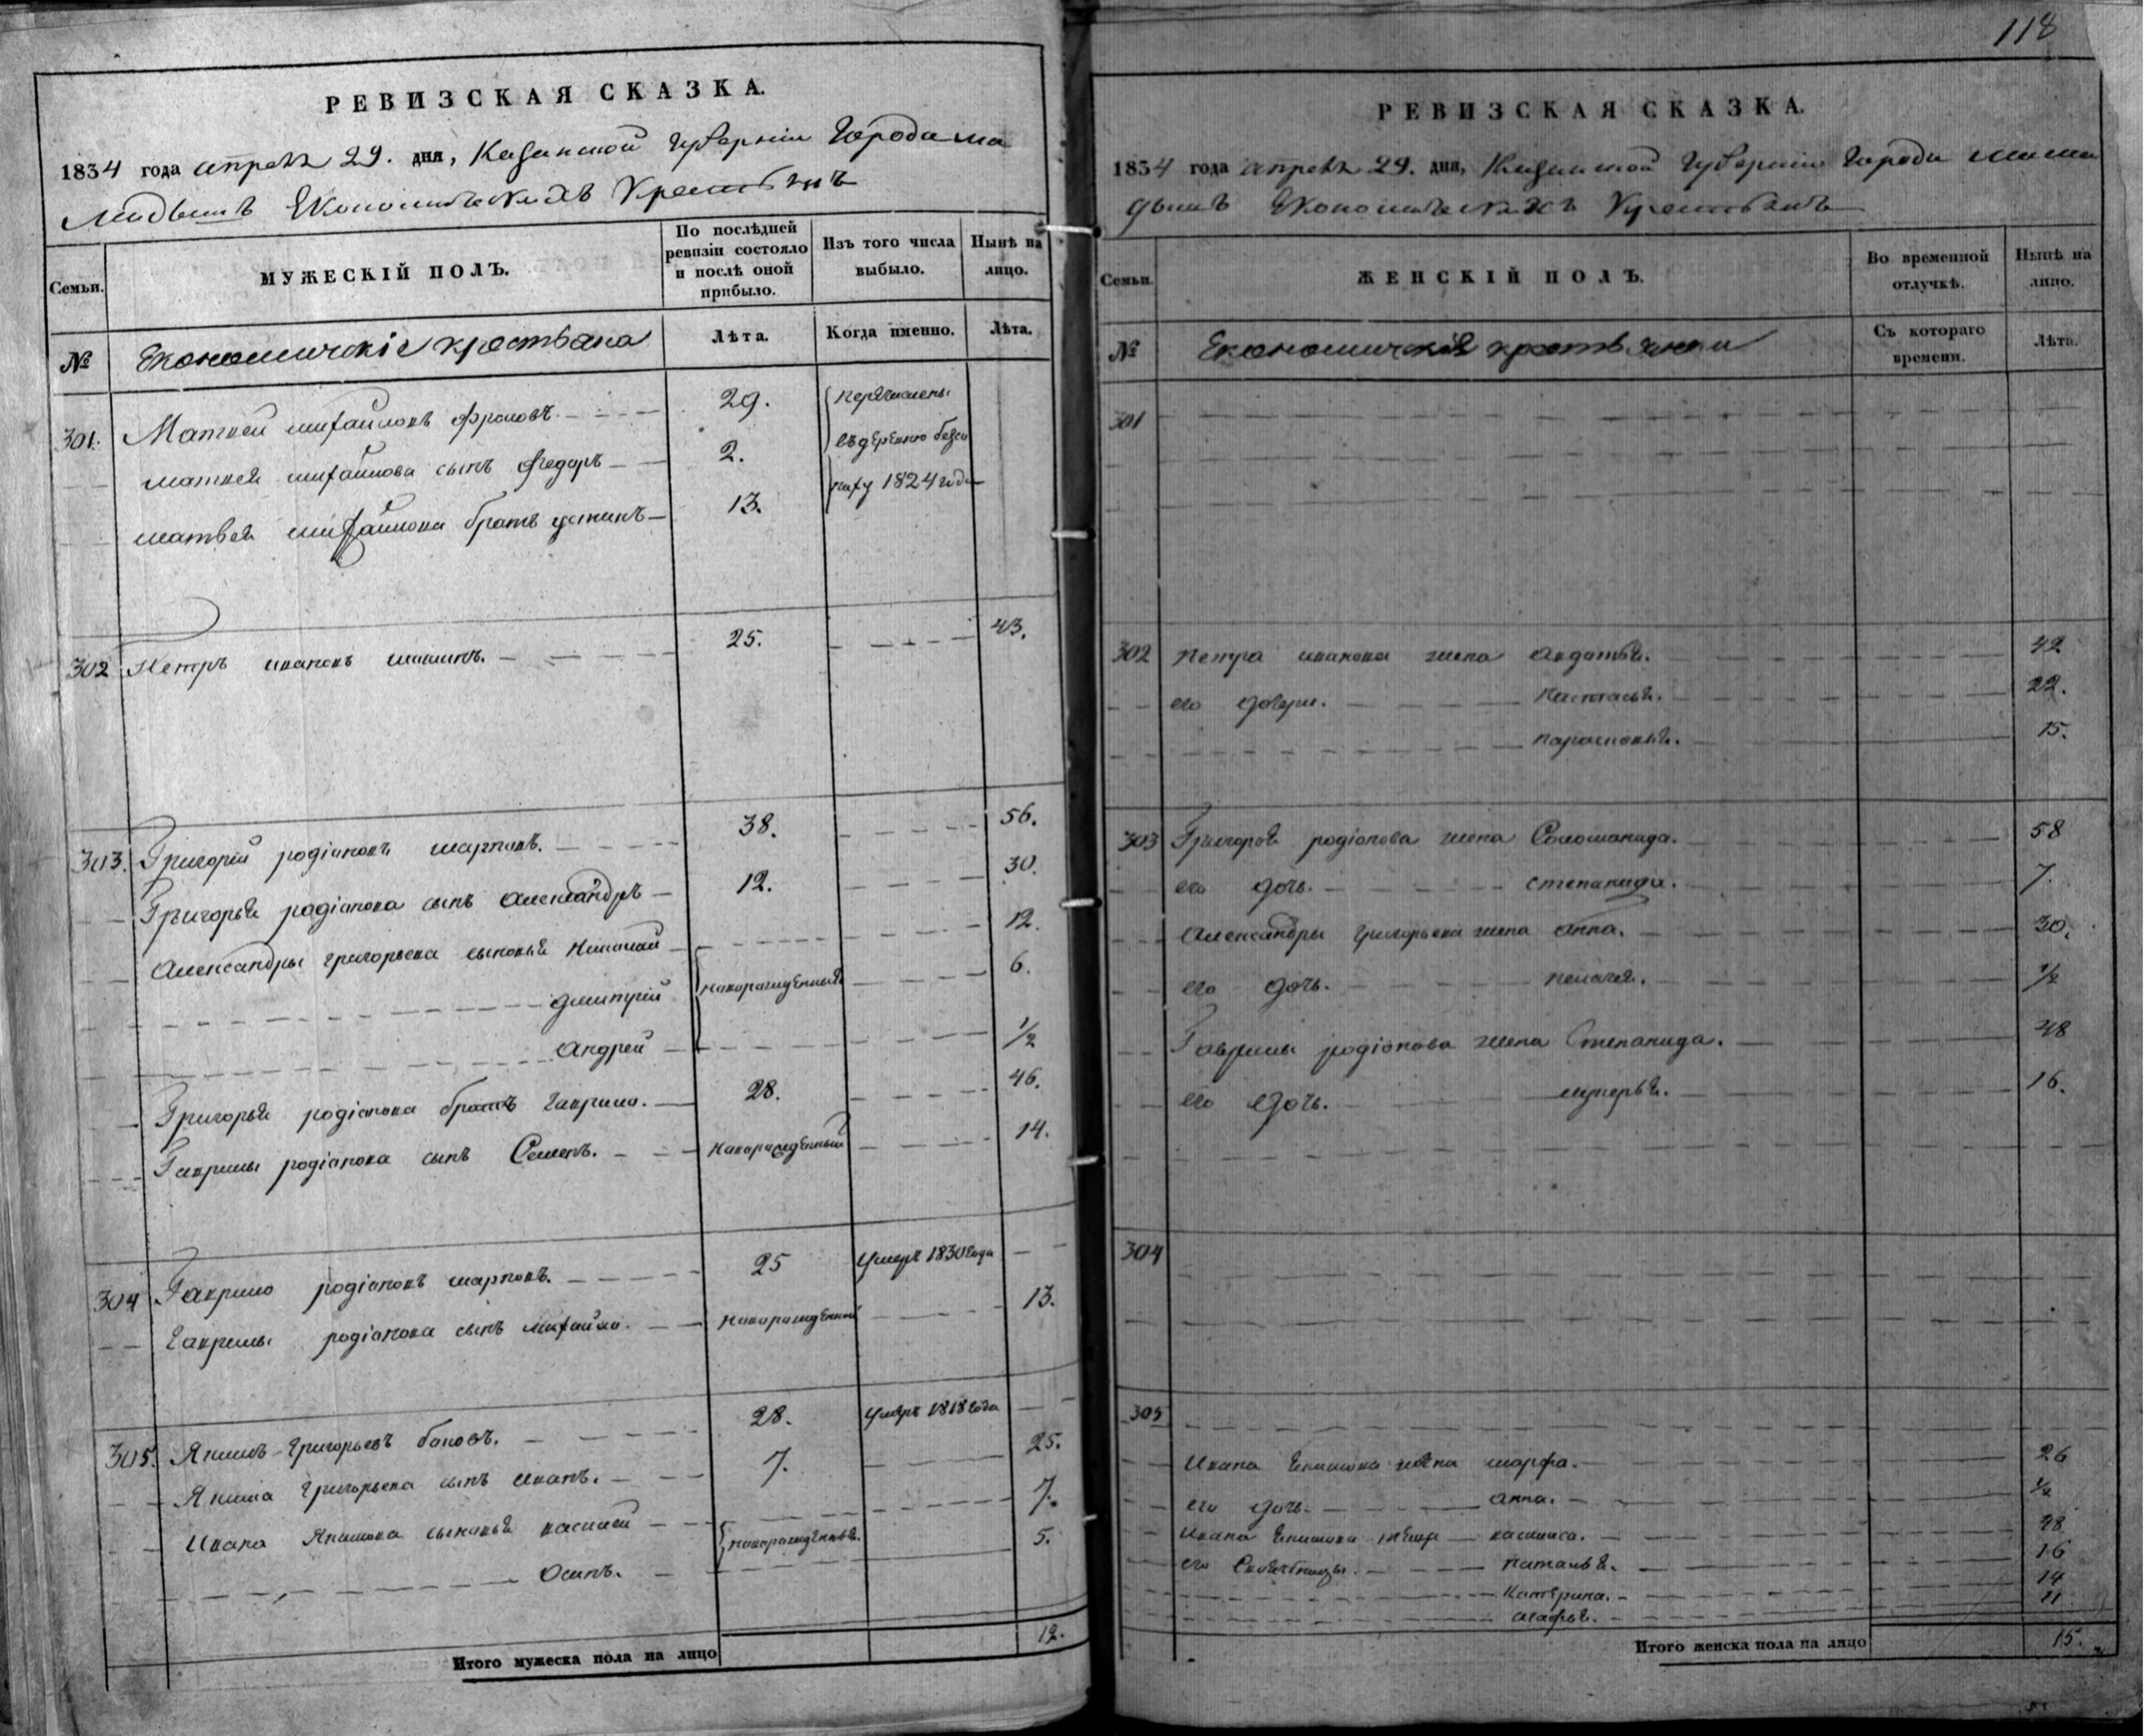 РЕВИЗСКАЯ СКАЗКА.
1834 года апреля 29. дня, Казанской губернiи Города Ма
мадышъ Економическихъ Крестьянъ
Семьи.
МУЖЕСКІЙ ПОЛЪ.
По послѣдней ревизіи состояло и послѣ оной прибыло.
Изъ того числа выбыло.
Нынѣ на лицо.
№
Економическiе крестьяна
Лѣта.
Когда именно.
Лѣта.
301. Матвей михайловъ фроловъ. 29. перечислены
матвея михайлова сынъ федоръ 2. въ деревню
матвея михайлова братъ устинъ 13. 1824 года
302 Петръ ивановъ шишинъ. 25. 43.
303. Григорiй родiоновъ шарповъ. 38. 56.
Григорья родiонова сынъ александръ 12. 30.
Александры григорьева сыновья Николай 12.
дмитрiй новорожденныя 6.
андрей 1/2
Григорья родiонова братъ гаврило. 28. 46.
Гаврилы родiонова сынъ Семенъ. новорожденный 14.
304 Гаврило родiоновъ шарповъ. 25 умеръ 1830 года
гаврилы родiонова сынъ михайло. новорожденный 13.
305. Якимъ григорьевъ боковъ. 28. умеръ 1818 года
Якима григорьева сынъ иванъ. 7. 25.
Ивана Якимова сыновья василей 7.
осипъ. новорожденныя. 5.
Итого мужеска пола на лицо 12.
118
РЕВИЗСКАЯ СКАЗКА.
1834 года апреля 29. дня, Казанской Губернiи Города мама
дышъ Економическихъ Крестьянъ
Семьи.
ЖЕНСКІЙ ПОЛЪ.
Во временной отлучкѣ.
Нынѣ на лицо.
№
Економическiя крестьянки
Съ котораго времени.
Лѣта.
301
302 Петра иванова жена авдотья. 42
его дочери. настасья. 22.
парасковья. 15.
303 Григорья родiонова жена Соломанида. 58
его дочь. степанида. 7.
Александры григорьева жена анна. 30.
его дочь. пелагея. 1/2
Гаврилы родiонова жена Степанида. 48
его дочь. лукерья. 16.
304
305
Ивана Екимова жена марфа. 26
его дочь. анна. 1/2
Ивана Екимова теща василиса. 48
его Своячницы. наталья. 16
Катерина. 14
агафья. 11
Итого женска пола на лицо 15.